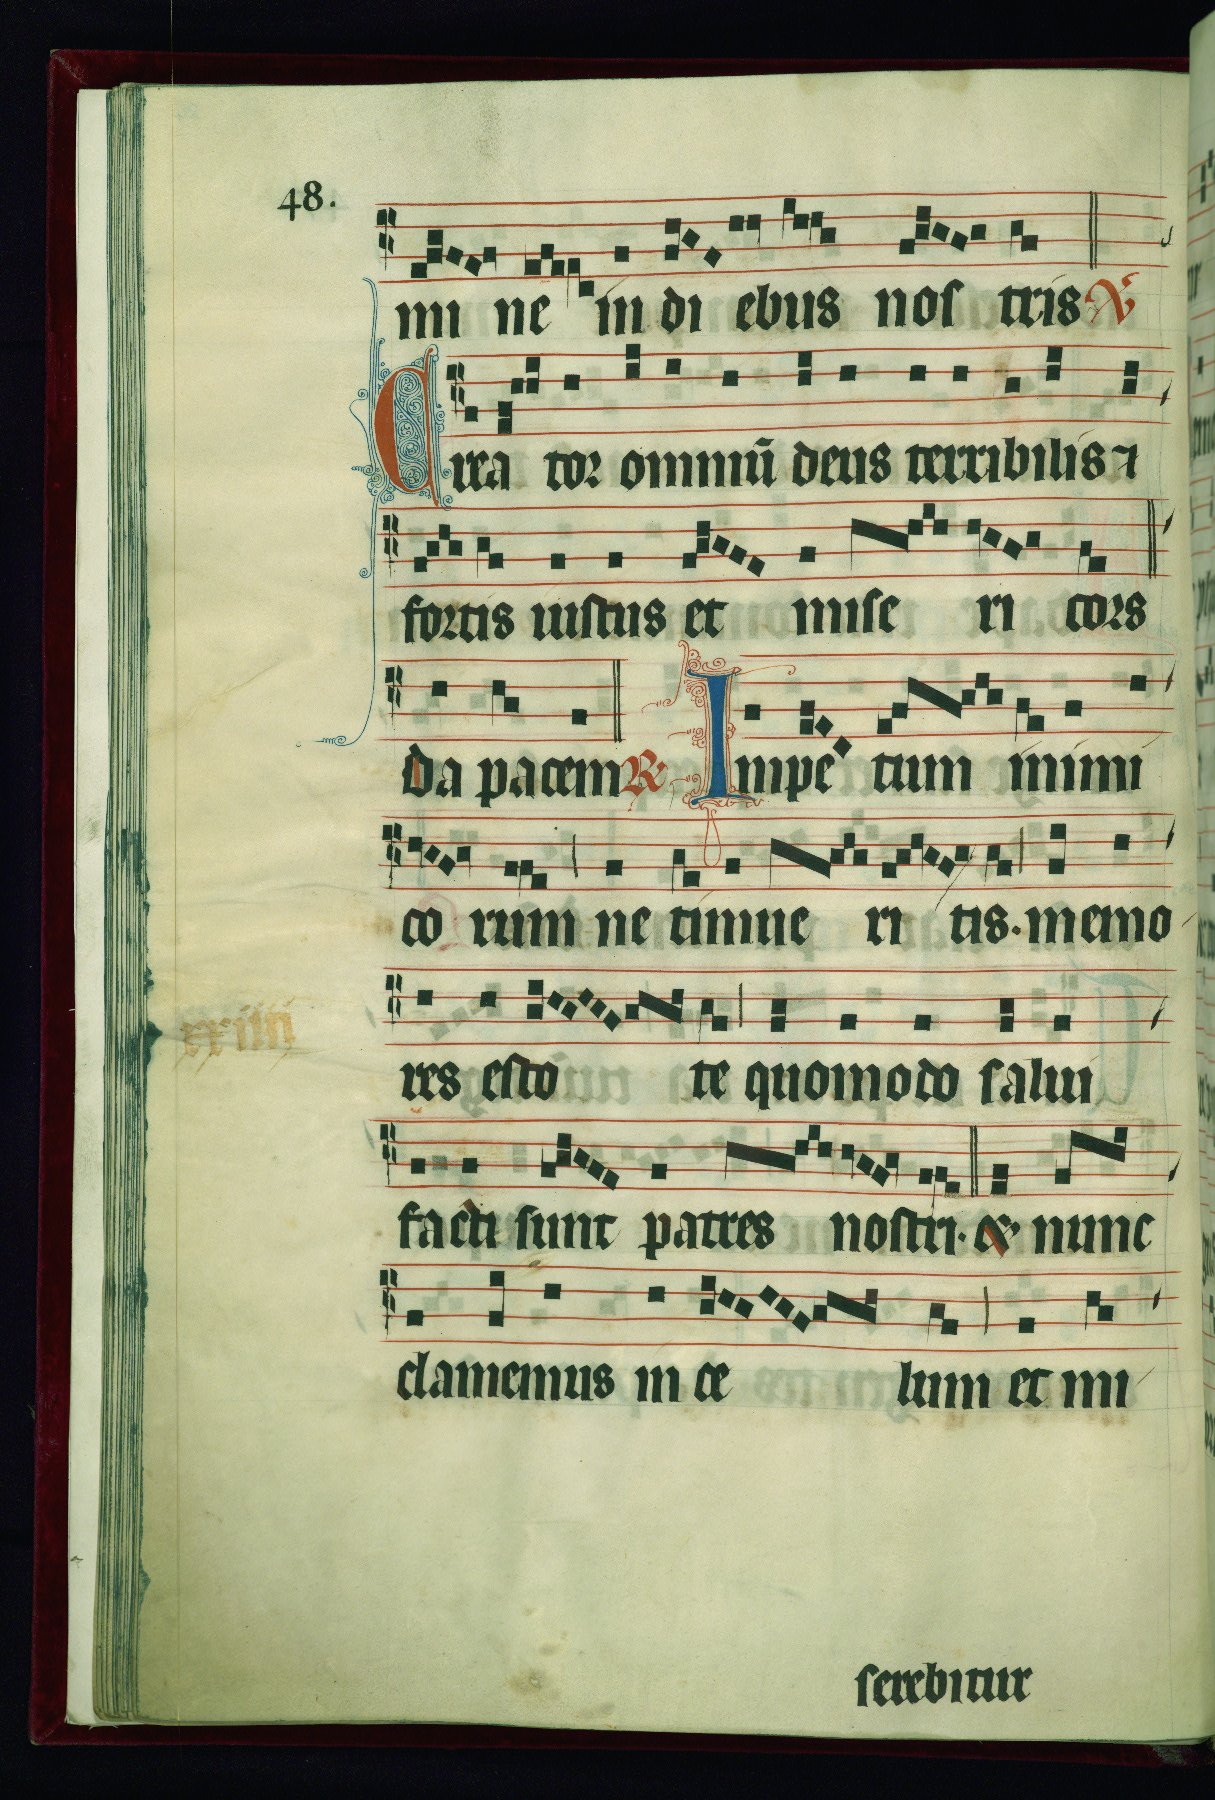 48.
mi ne in di ebus nos tris ℣
Crea tor omniū deus terribilis ⁊
fortis iustus et mise ri cors
da pacem ℟ Impe tum inimi
co rum ne timue ri tis. memo
res esto te quomodo salui
xxiiii
facti sunt patres nostri. & nunc
clamemus in ce lum et mi
serebitur